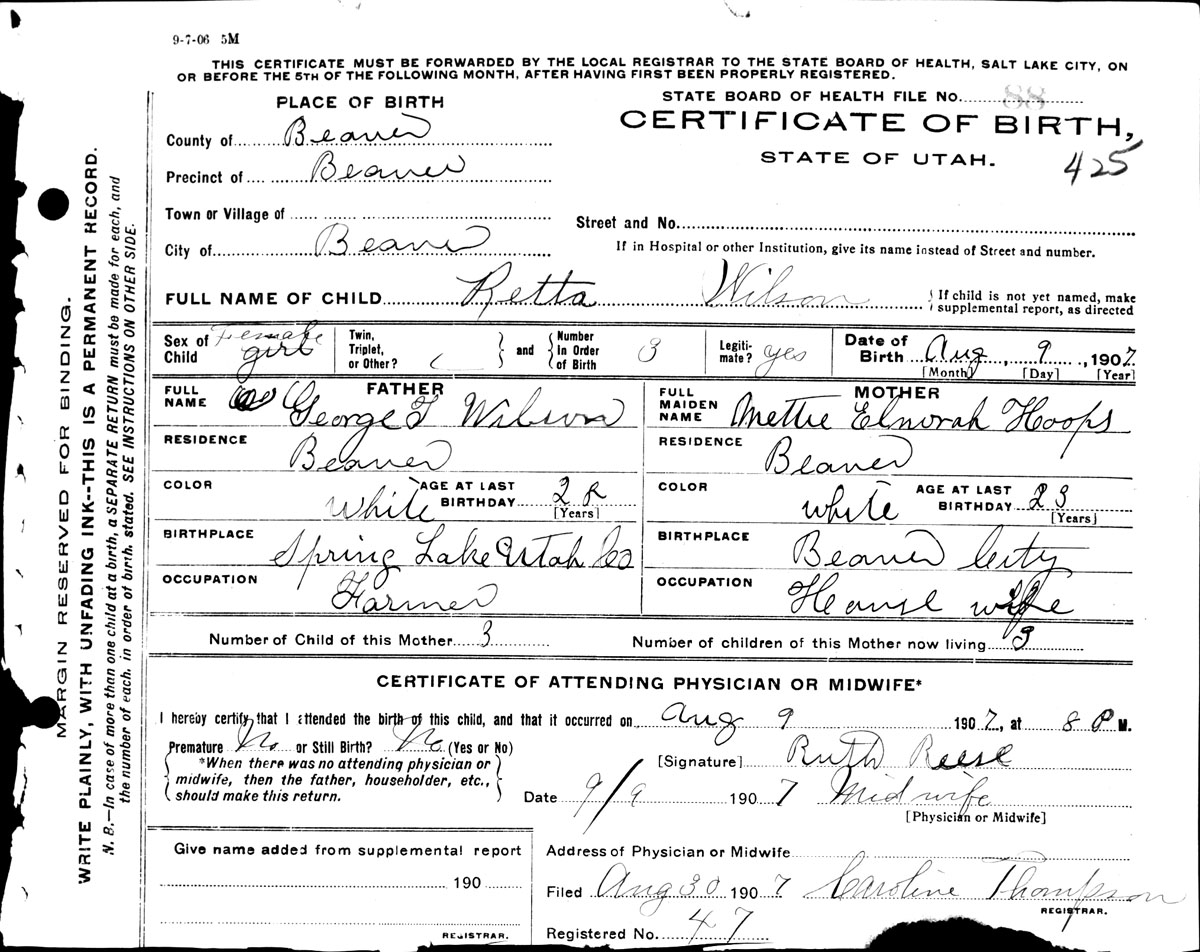 9-7-06 5M
THIS CERTIFICATE MUST BE FORWARDED BY THE LOCAL REGISTRAR TO THE STATE BOARD OF HEALTH, SALT LAKE CITY, ON
OR BEFORE THE 5TH OF THE FOLLOWING MONTH, AFTER HAVING FIRST BEEN PROPERLY REGISTERED.
STATE BOARD OF HEALTH FILE No. 88
CERTIFICATE OF BIRTH,
STATE OF UTAH.
425
PLACE OF BIRTH
County of Beaver
Precinct of Beaver
Town or Village of
City of Beaver
Street and No.
If in Hospital or other Institution, give its name instead of Street and number.
FULL NAME OF CHILD Retta Wilson
If child is not yet named, make
supplemental report, as directed
Sex of Child Female girl
Twin, Triplet, or Other? and Number In Order of Birth 3
Legitimate? yes
Date of Birth Aug 9, 1907
[Month] [Day] [Year]
FATHER
FULL NAME George T Wilson
RESIDENCE Beaver
COLOR white AGE AT LAST BIRTHDAY 28
[Years]
BIRTHPLACE Spring Lake Utah Co
OCCUPATION Farmer
MOTHER
FULL MAIDEN NAME Mettie Elnorah Hoops
RESIDENCE Beaver
COLOR white AGE AT LAST BIRTHDAY 23
[Years]
BIRTHPLACE Beaver City
OCCUPATION House wife
Number of Child of this Mother 3
Number of children of this Mother now living 3
CERTIFICATE OF ATTENDING PHYSICIAN OR MIDWIFE*
I hereby certify that I attended the birth of this child, and that it occurred on Aug 9 1907, at 8 P M.
Premature No or Still Birth? No (Yes or No)
*When there was no attending physician or
midwife, then the father, householder, etc.,
should make this return.
[Signature] Ruth Reese
Date 9/9 1907 Midwife
[Physician or Midwife]
Give name added from supplemental report
190
REGISTRAR.
Address of Physician or Midwife
Filed Aug 30 1907 Caroline Thompson
REGISTRAR.
Registered No. 47
MARGIN RESERVED FOR BINDING.
WRITE PLAINLY, WITH UNFADING INK--THIS IS A PERMANENT RECORD.
N. B.—In case of more than one child at a birth, a SEPARATE RETURN must be made for each, and
the number of each, in order of birth, stated. SEE INSTRUCTIONS ON OTHER SIDE.